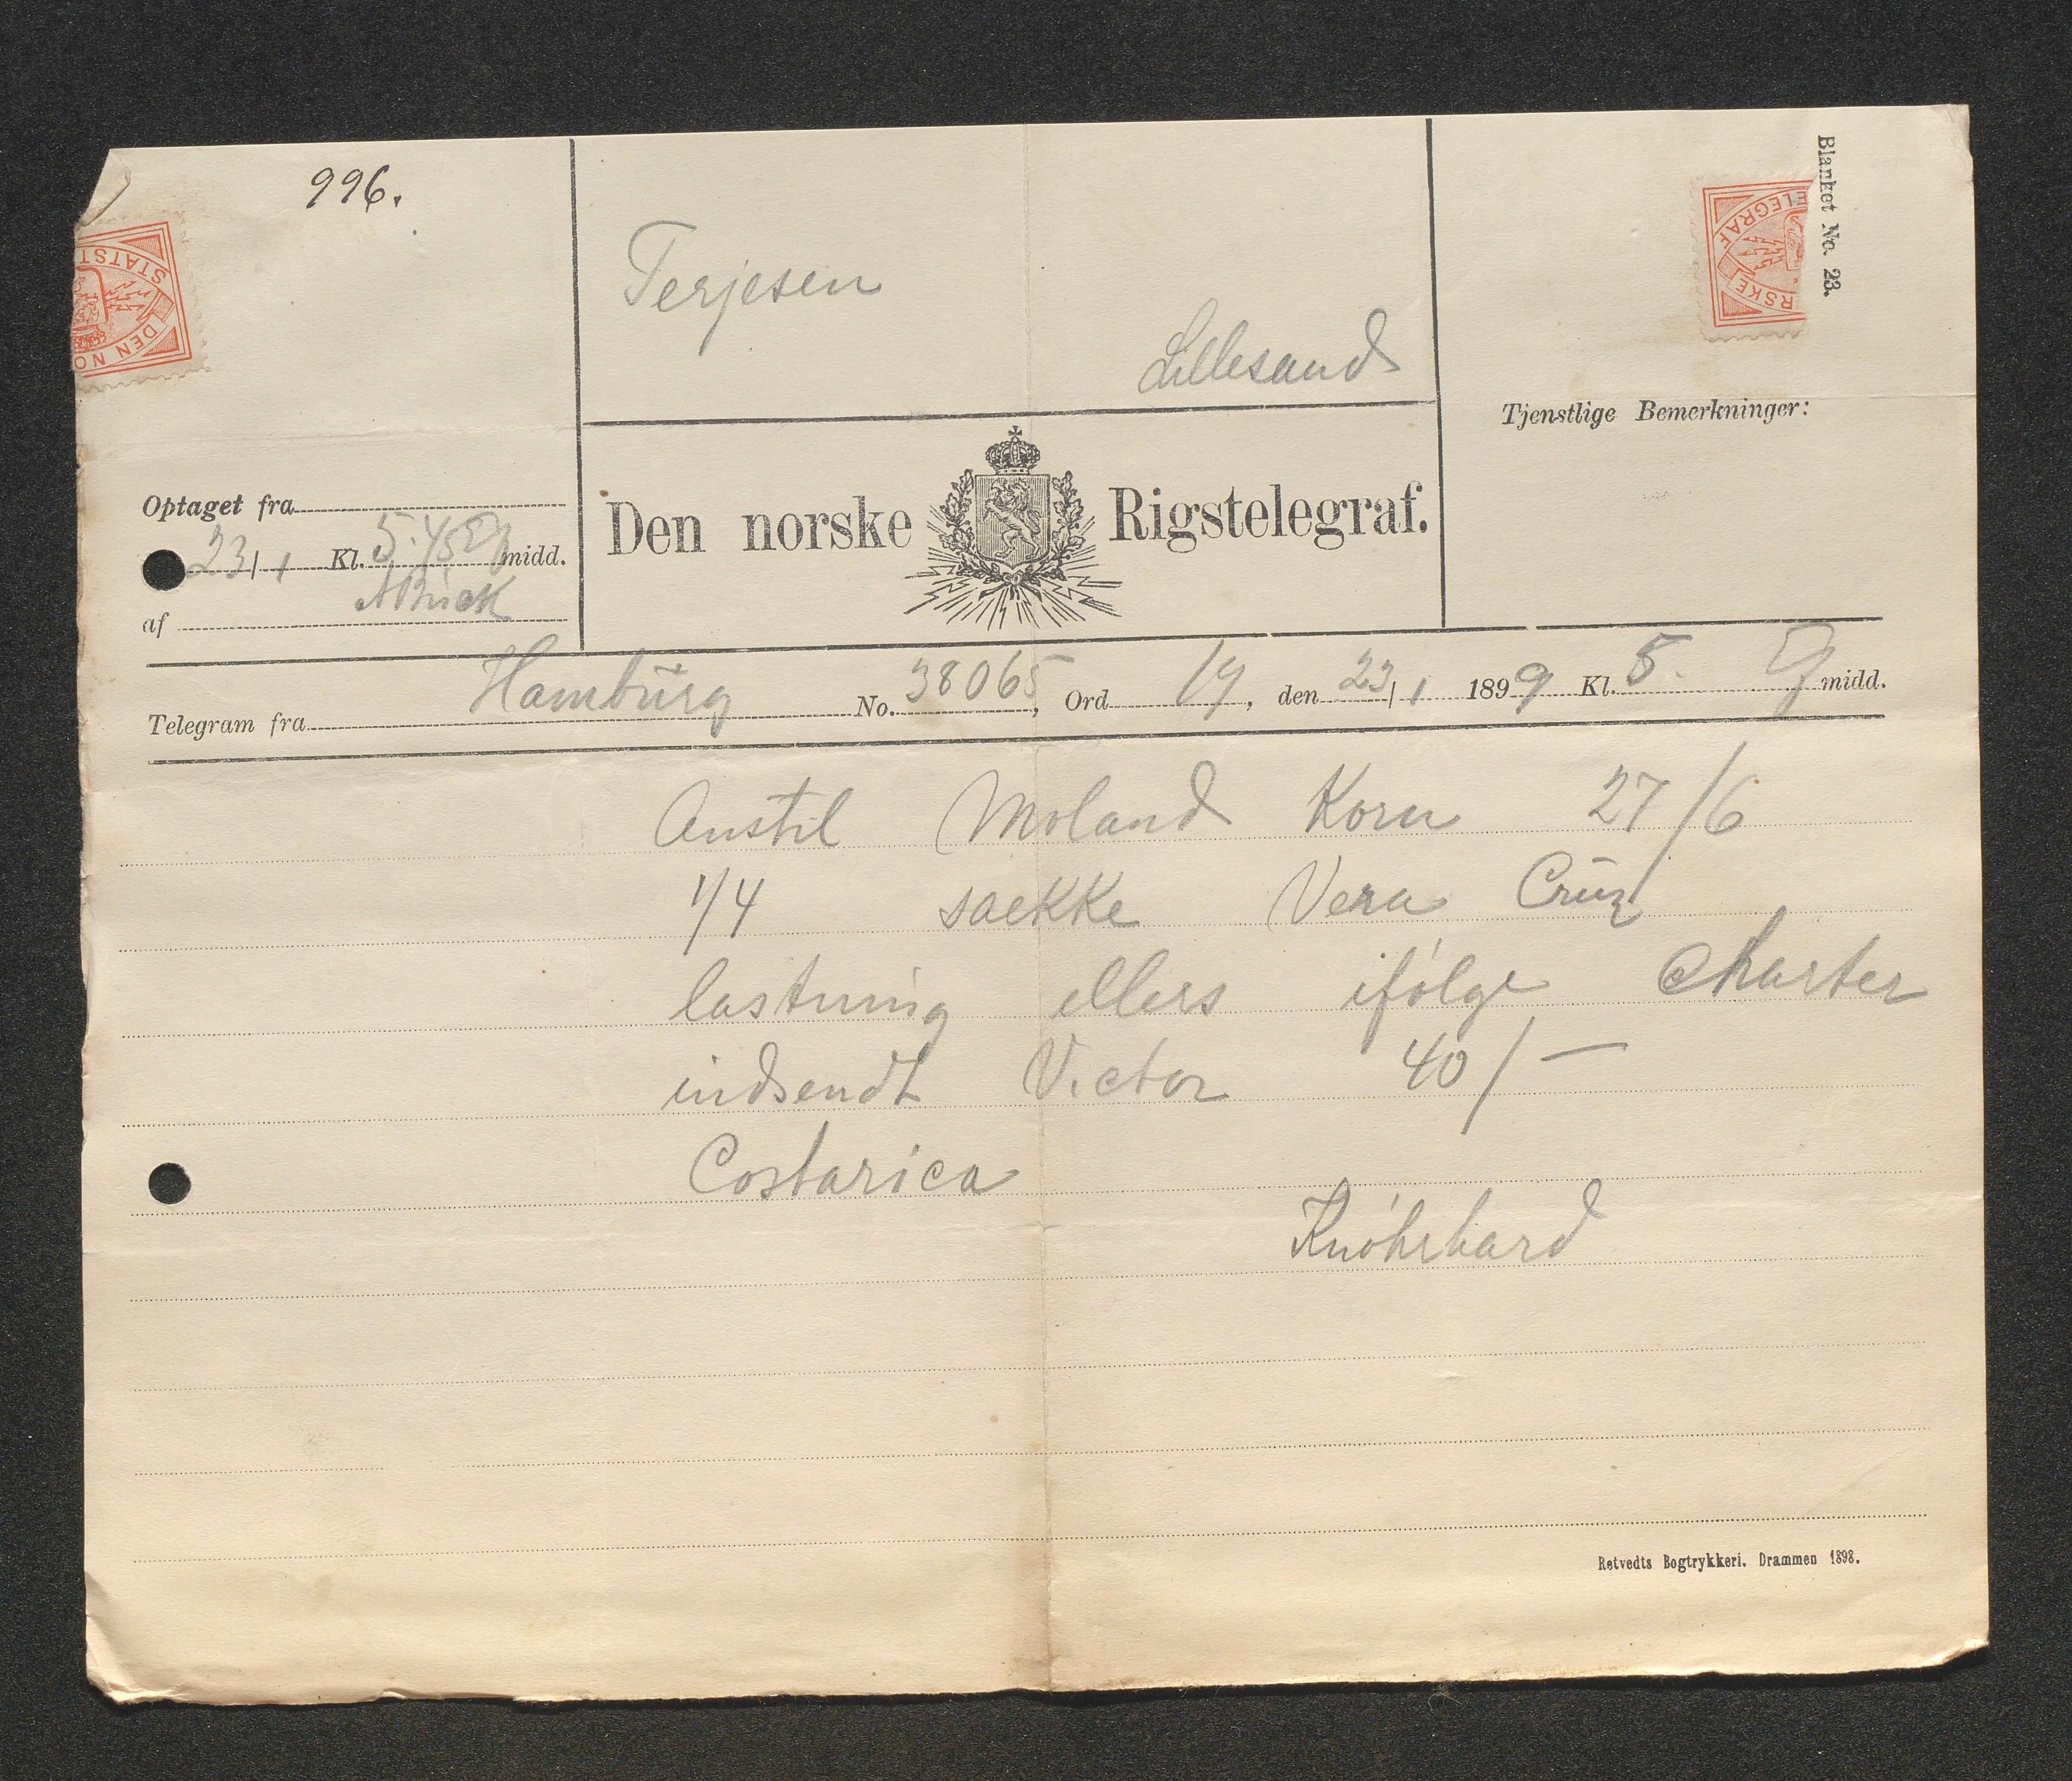 996.
Terjesen
Lillesand
Blanket No. 23.
STATST
DEN NO
ELEGRAF
RSKE
Tjenstlige Bemerkninger:
Optaget fra
23/1 Kl. 5.45 E midd.
af
Den norske Rigstelegraf.
Telegram fra Hamburg No. 38065, Ord 19, den 23/1 1899 Kl. 5. E midd.
Anstil Moland Korn 27/6
1/4 saekke Vera Cruz
lastning ellers ifølge charter
indsendt Victor 40/—
Costarica
Knöhrhard
Retvedts Bogtrykkeri. Drammen 1898.